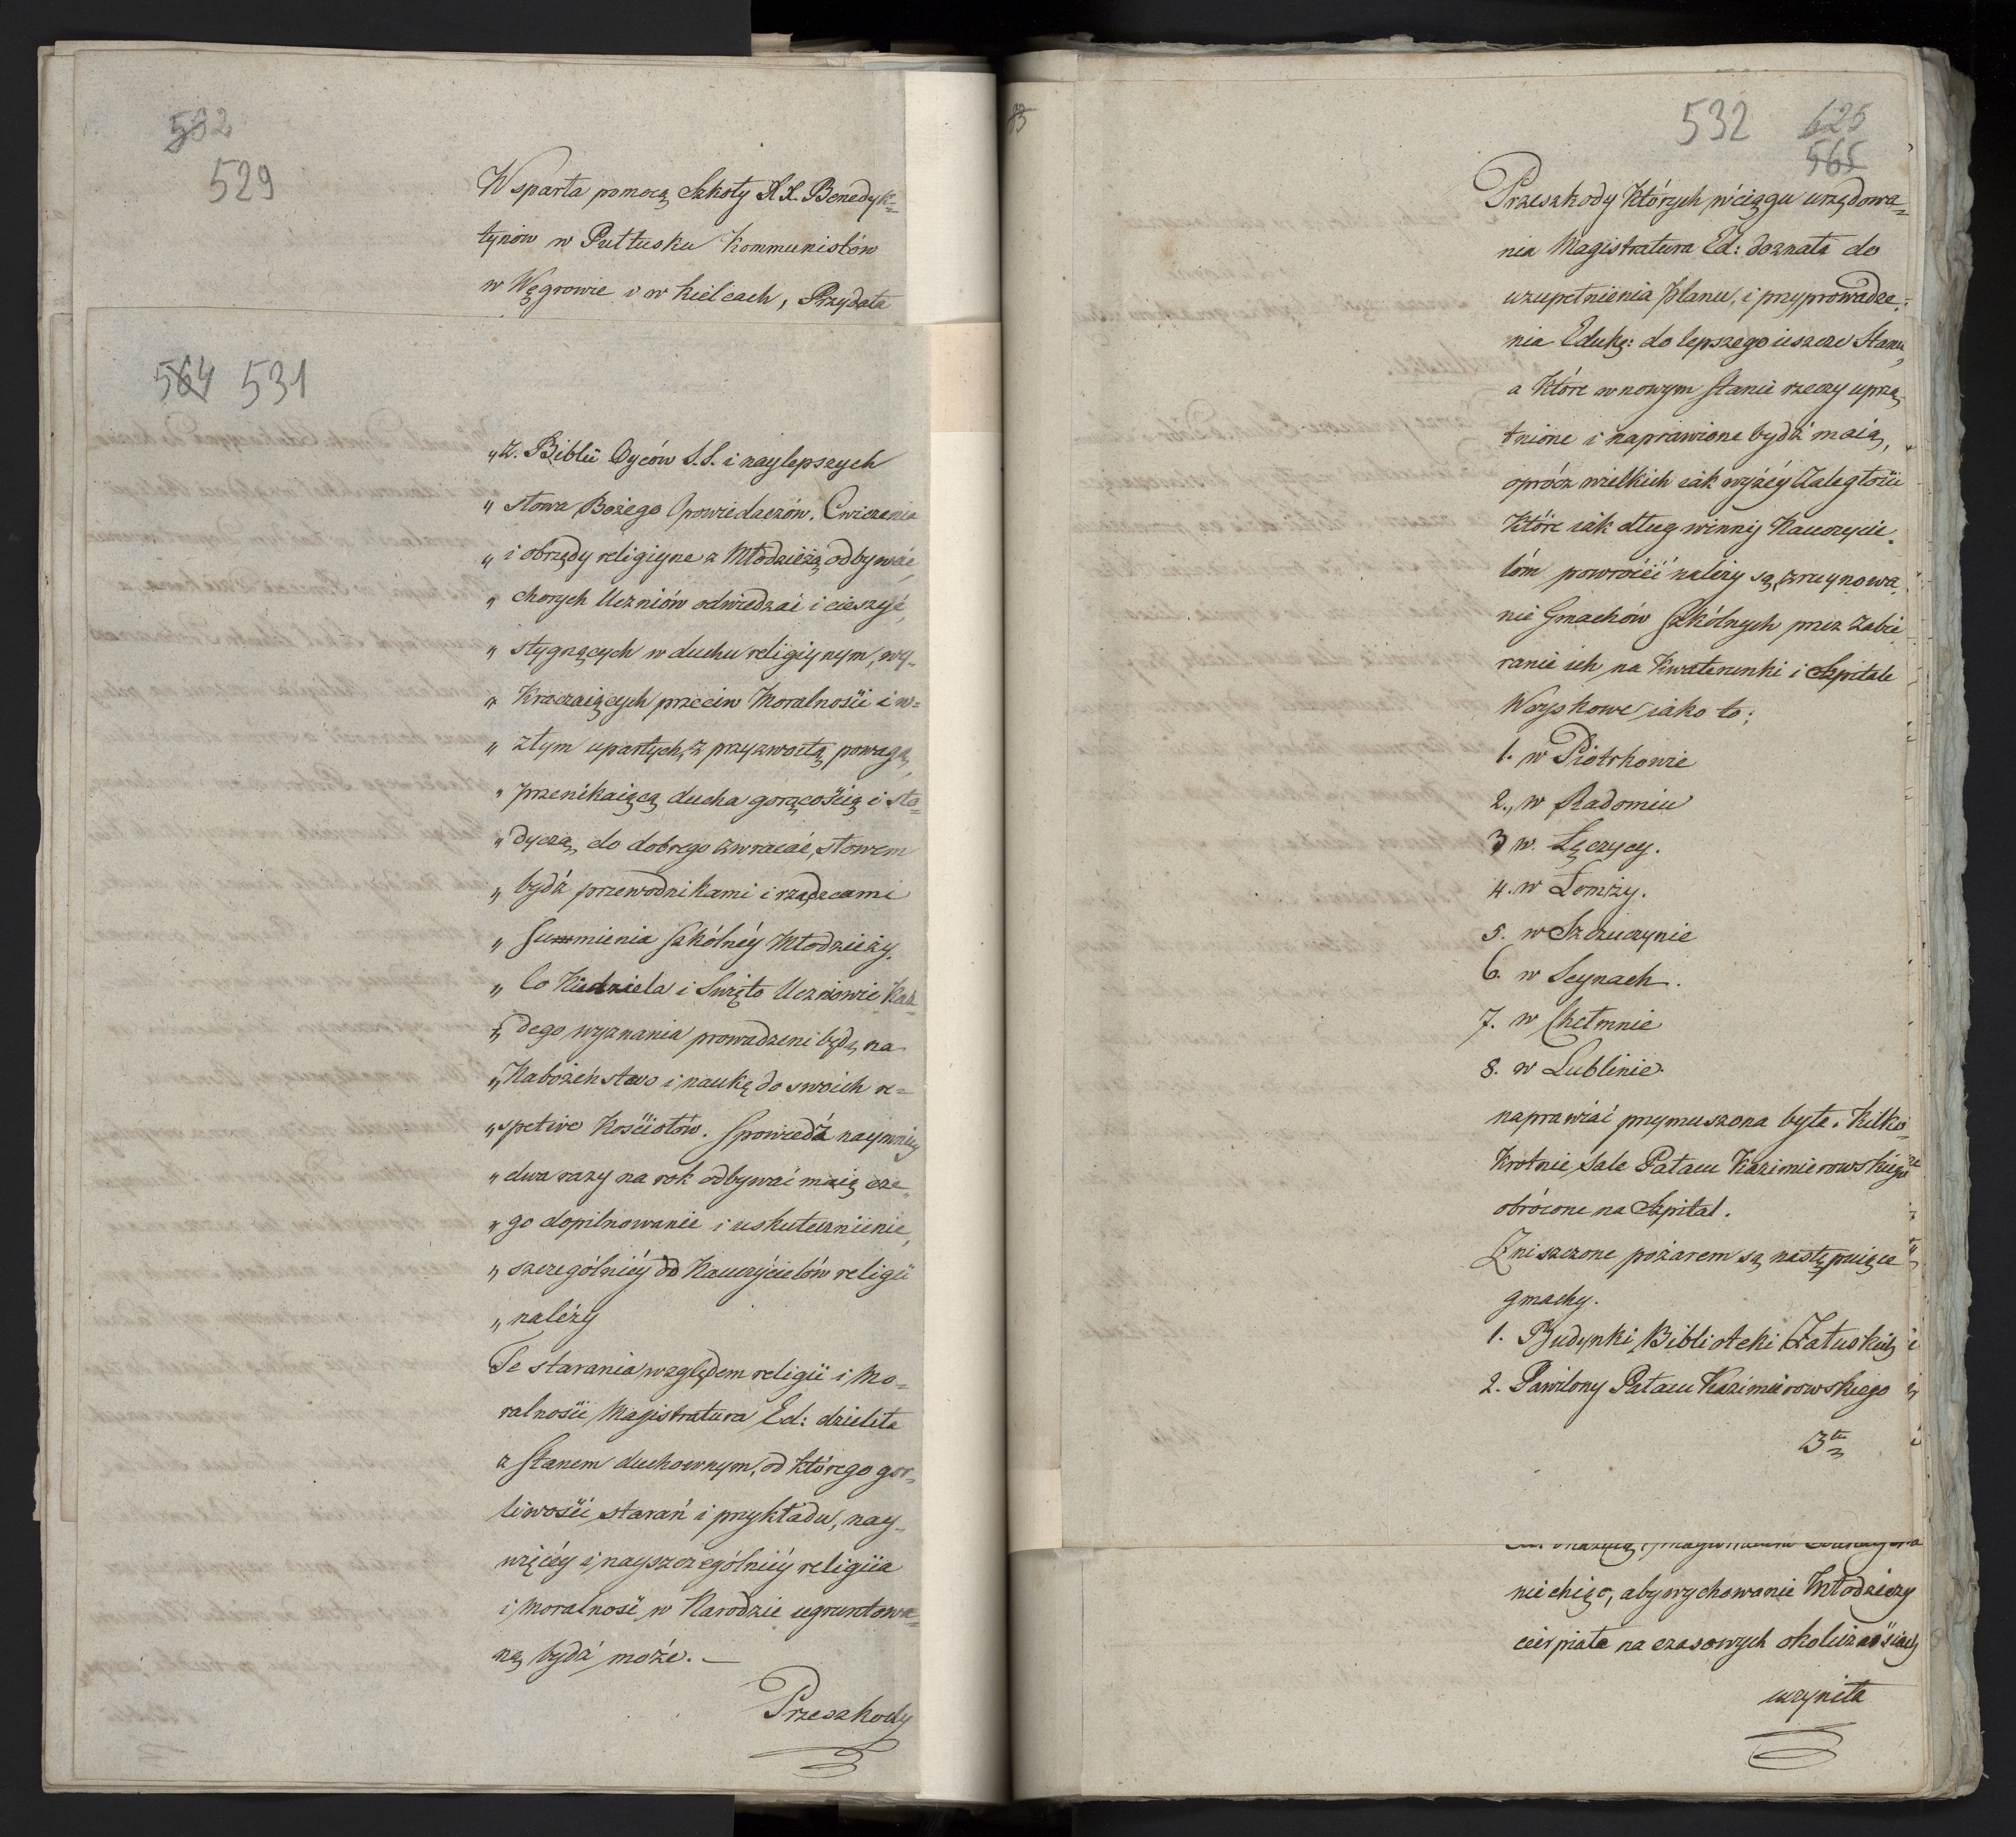 532
529
Wsparta pomocą Szkoły XX. Benedyk=
tynów w Pułtusku Kommunistów
w Węgrowie i w Kielcach, Przydała
564 531
„ Z. Biblii Oyców S.S. i naylepszych
„ słowa Bożego Opowiedaczów. Cwiczenia
„ i obrzędy religiyne z Młodzieżą odbywać,
„ chorych Uczniów odwiedzać i cieszyć,
„ stygnących w duchu religiynym, wy-
„ kraczaiących przeciw Moralności i w=
„ złym upartych, z przyzwoitą powagą,
„ przenikaiącą ducha gorącością i sło=
„ dyczą, do dobrego zwracać, słowem
„ bydź przewodnikami i rządzcami
„ summienia szkólnéy Młodzieży.
„ Co Niedziela i Swięto Uczniowie każ=
„ dego wyznania prowadzeni będą na
„ Nabożeństwo i naukę do swoich re=
„ spetive Kościołów. Spowiedź naymniey
„ dwa razy na rok odbywać maią cze-
„ go dopilnowanie i uskutecznienie,
„ szczególniéy od Nauczycielów religii
„ należy
Te starania względem religii i Mo=
ralności Magistratura Ed: dzieliła
z Stanem duchownym, od którego gor-
liwości starań i przykładu, nay-
więcéy i nayszczególniéy religiia
i Moralność w Narodzie ugruntowa=
ną bydź może. —
Przeszkody
83
532 625
565
Przeszkody których w ciągu urzędowa=
nia Magistratura Ed: doznała do
uzupełnienia planu, i przyprowadze-
nia Edukę: do lepszego ieszcze Stanu,
a które w nowym stanie rzeczy uprzą-
tnione i naprawione bydź maią,
oprócz wielkich iak wyżéy Zaległości
które iak dług winny Nauczycie-
lóm powrócić należy są, zruynowa-
nie Gmachów Szkólnych przez Zabie
ranie ich na Kwaterunki i Szpitale
Woyskowe iako to:
1. w Piotrkowie
2., w Radomiu
3 w. Łęczycy.
4. w Łomży.
5. w Szczuczynie
6. w Seynach.
7. w Chełmnie
8. w Lublinie.
naprawiać przymuszona była. Kilka=
krotnie, sale Pałacu Kazimierowskiego
obrócone na Szpital.
Zniszczone pożarem są następuiące
gmachy.
1. Budynki Biblioteki Załuskich
2. Pawilony Pałacu Kazimierowskiego
3tn
nie chcąc, aby wychowanie Młodzieży
cierpiało na czasowych okolicznościach
uczyniła